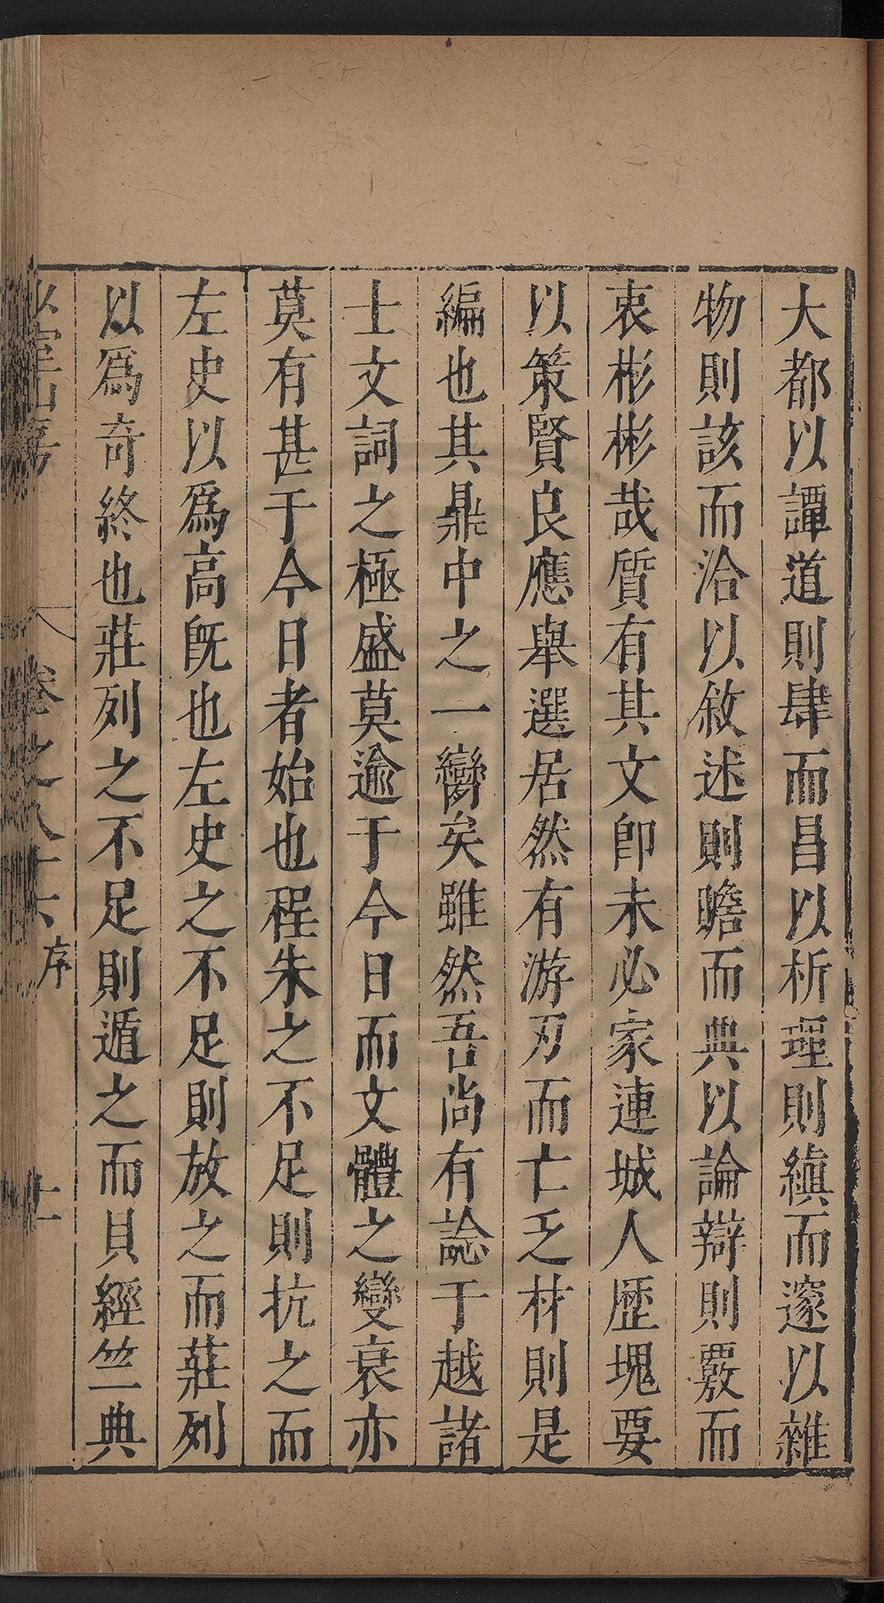 大都以譚道則肆而昌以析理則縝而邃以雜
物則該而洽以敘述則瞻而典以論辯則覈而
衷彬彬哉質有其文卽未必家連城人歷塊要
以策賢良應舉選居然有游刃而亡乏材則是
編也其鼎中之一臠矣雖然吾尚有諗于越諸
士文詞之極盛莫逾于今日而文體之變衰亦
莫有甚于今日者始也程朱之不足則抗之而
左史以爲高旣也左史之不足則放之而莊列
以爲奇終也莊列之不足則遁之而貝經竺典
卷之八十六 序